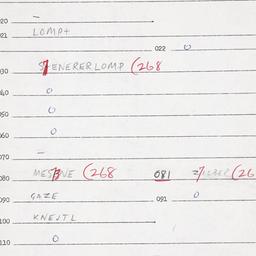 020 –
021 LOMP+
022 0
030 STENERERLOMP (268
040 0
050 0
060 0
070 –
080 MESSINE (268 081 (26
090 GAZE 091 0
100 KNEJTL
110 0